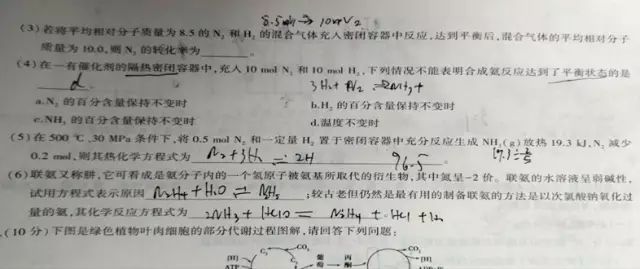 8.5mol → 10molN₂
(3)若将平均相对分子质量为 8.5 的 N₂ 和 H₂ 的混合气体充入密闭容器中反应,达到平衡后,混合气体的平均相对分子
质量为 10.0,则 N₂ 的转化率为
(4)在一有催化剂的隔热密闭容器中,充入 10 mol N₂ 和 10 mol H₂,下列情况不能表明合成氨反应达到了平衡状态的是
d. 3H₂+N₂ ⇌2NH₃+
a.N₂ 的百分含量保持不变时 b.H₂ 的百分含量保持不变时
c.NH₃ 的百分含量保持不变时 d.温度不变时
(5)在 500 ℃、30 MPa 条件下,将 0.5 mol N₂ 和一定量 H₂ 置于密闭容器中充分反应生成 NH₃(g)放热 19.3 kJ,N₂ 减少
0.2 mol,则其热化学方程式为 N₂+3H₂ ⇌ 2H 96.5
(6)联氨又称肼,它可看成是氨分子内的一个氢原子被氨基所取代的衍生物,其中氮呈−2 价。联氨的水溶液呈弱碱性,
试用方程式表示原因 N₂H₄+H₂O ⇌ NH₅ ;较古老但仍然是最有用的制备联氨的方法是以次氯酸钠氧化过
量的氨,其化学反应方程式为 2NH₃+HClO = N₂H₄+HCl+H₂
.(10 分)下图是绿色植物叶肉细胞的部分代谢过程图解,请回答下列问题:
[H] CO₂ CO₂
C₅ C₃ 葡 丙 [H]
ATP 萄 酮